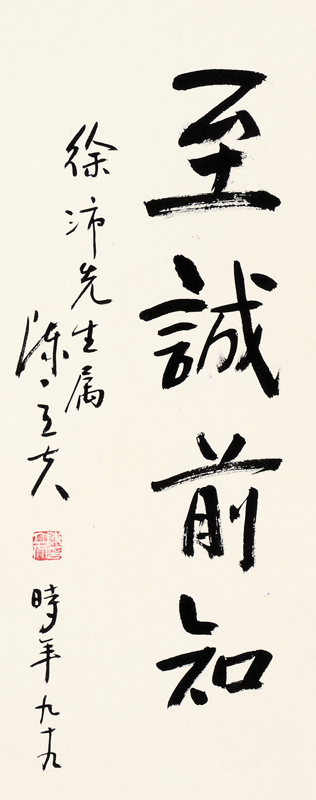 至誠前知
徐沛先生属
陳立夫
時年九十九